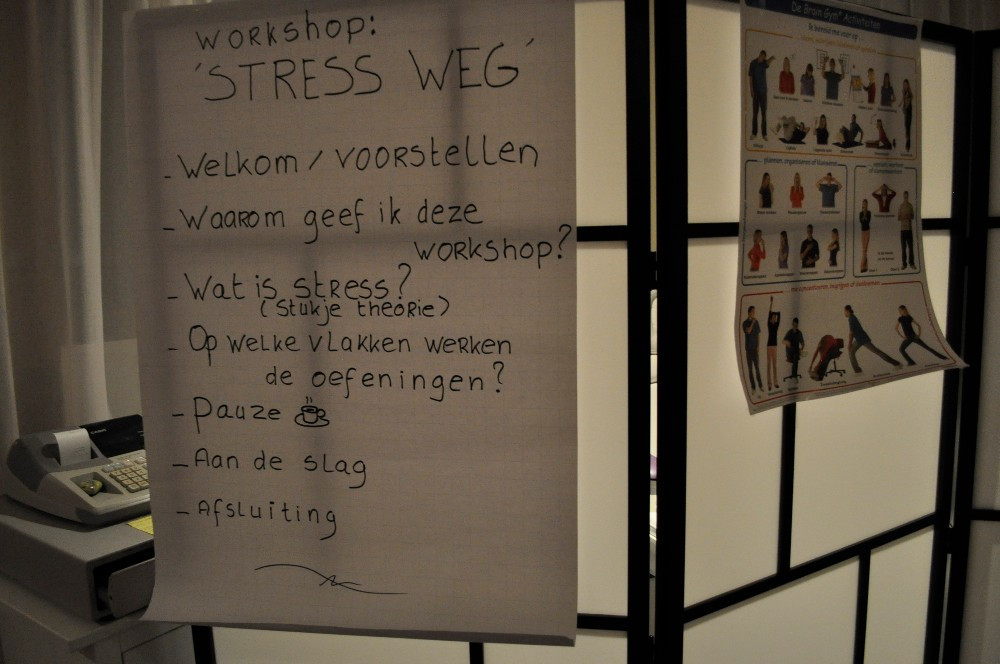 WORKSHOP:
'STRESS WEG'
- Welkom / VOORSTELLEN
- Waarom geef ik deze
WORKSHOP?
- Wat is stress?
(Stukje theorie)
- Op welke vlakken werken
de oefeningen?
- Pauze
- Aan de slag
- Afsluiting
De Brain Gym® Activiteiten
Ik bereid me voor op ...